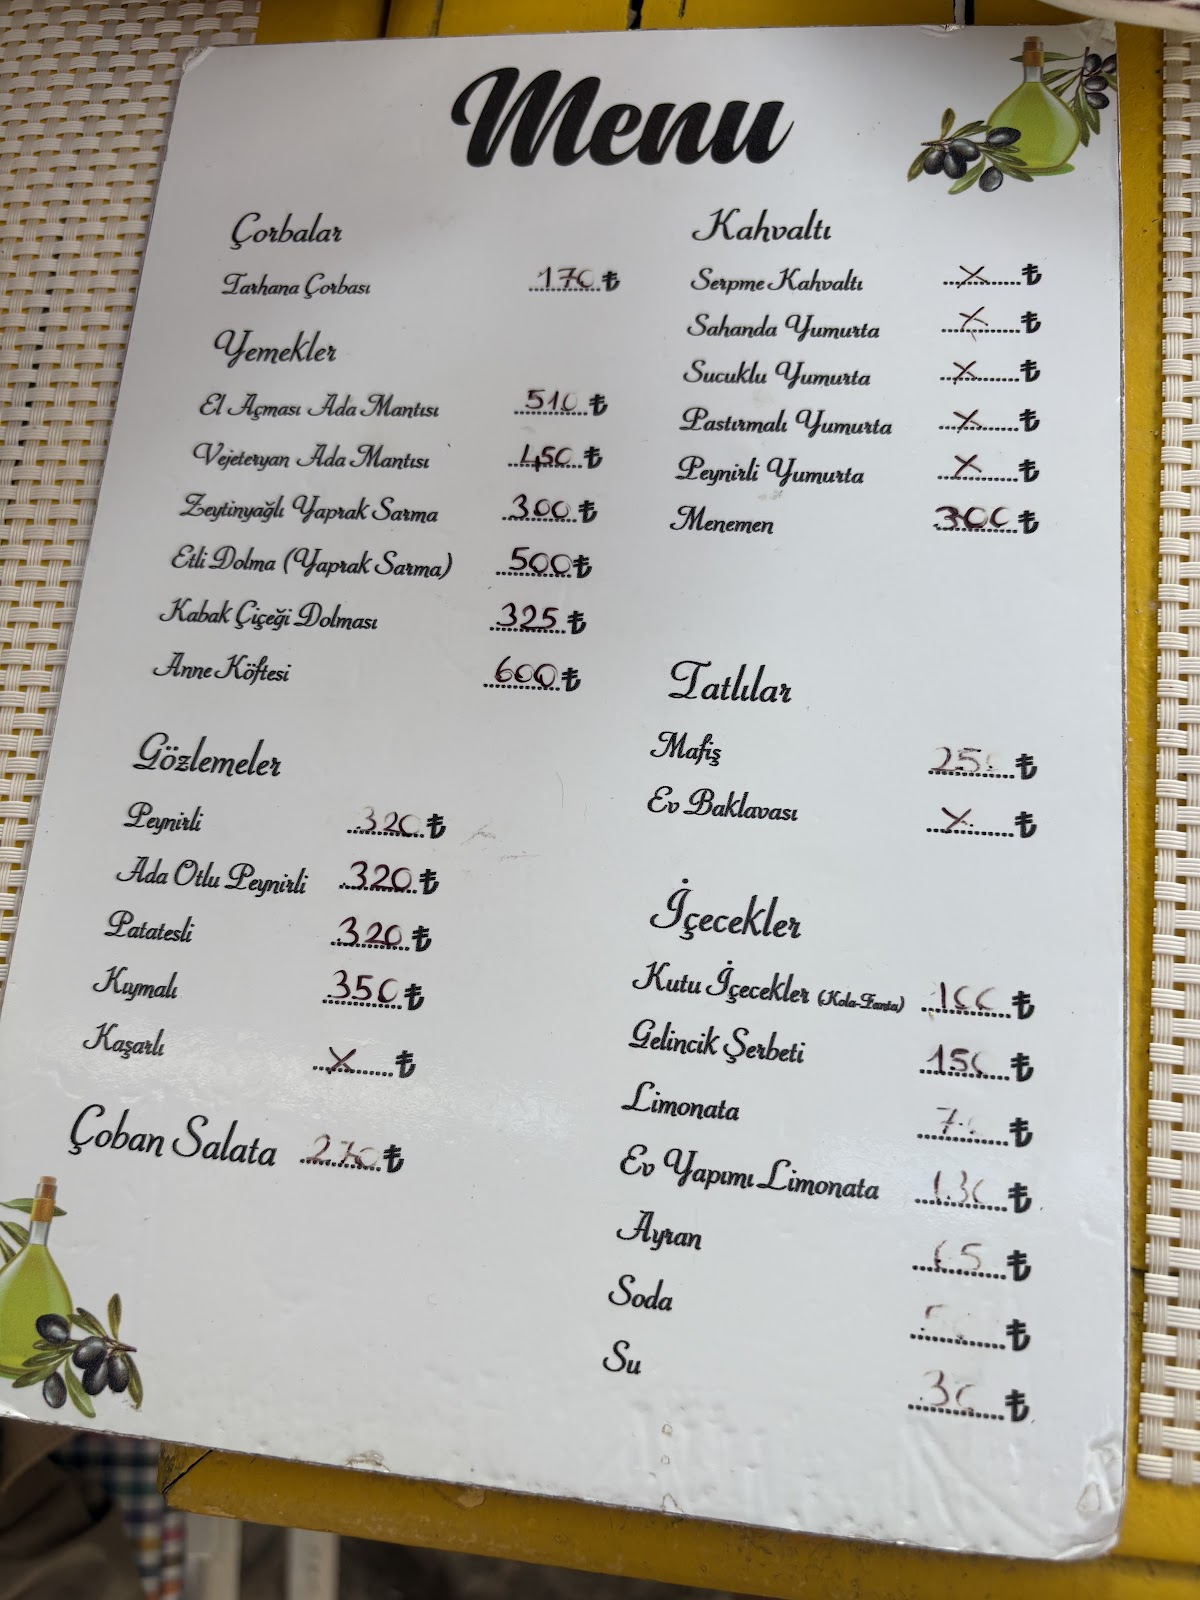 Menu
Çorbalar
Tarhana Çorbası 170 ₺
Yemekler
El Açması Ada Mantısı 510 ₺
Vejeteryan Ada Mantısı 450 ₺
Zeytinyağlı Yaprak Sarma 300 ₺
Etli Dolma (Yaprak Sarma) 500 ₺
Kabak Çiçeği Dolması 325 ₺
Anne Köftesi 600 ₺
Gözlemeler
Peynirli 320 ₺
Ada Otlu Peynirli 320 ₺
Patatesli 320 ₺
Kıymalı 350 ₺
Kaşarlı X ₺
Çoban Salata 270 ₺
Kahvaltı
Serpme Kahvaltı X ₺
Sahanda Yumurta X ₺
Sucuklu Yumurta X ₺
Pastırmalı Yumurta X ₺
Peynirli Yumurta X ₺
Menemen 300 ₺
Tatlılar
Mafiş 250 ₺
Ev Baklavası X ₺
İçecekler
Kutu İçecekler (Kola-Fanta) 100 ₺
Gelincik Şerbeti 150 ₺
Limonata ₺
Ev Yapımı Limonata 130 ₺
Ayran ₺
Soda ₺
Su 30 ₺